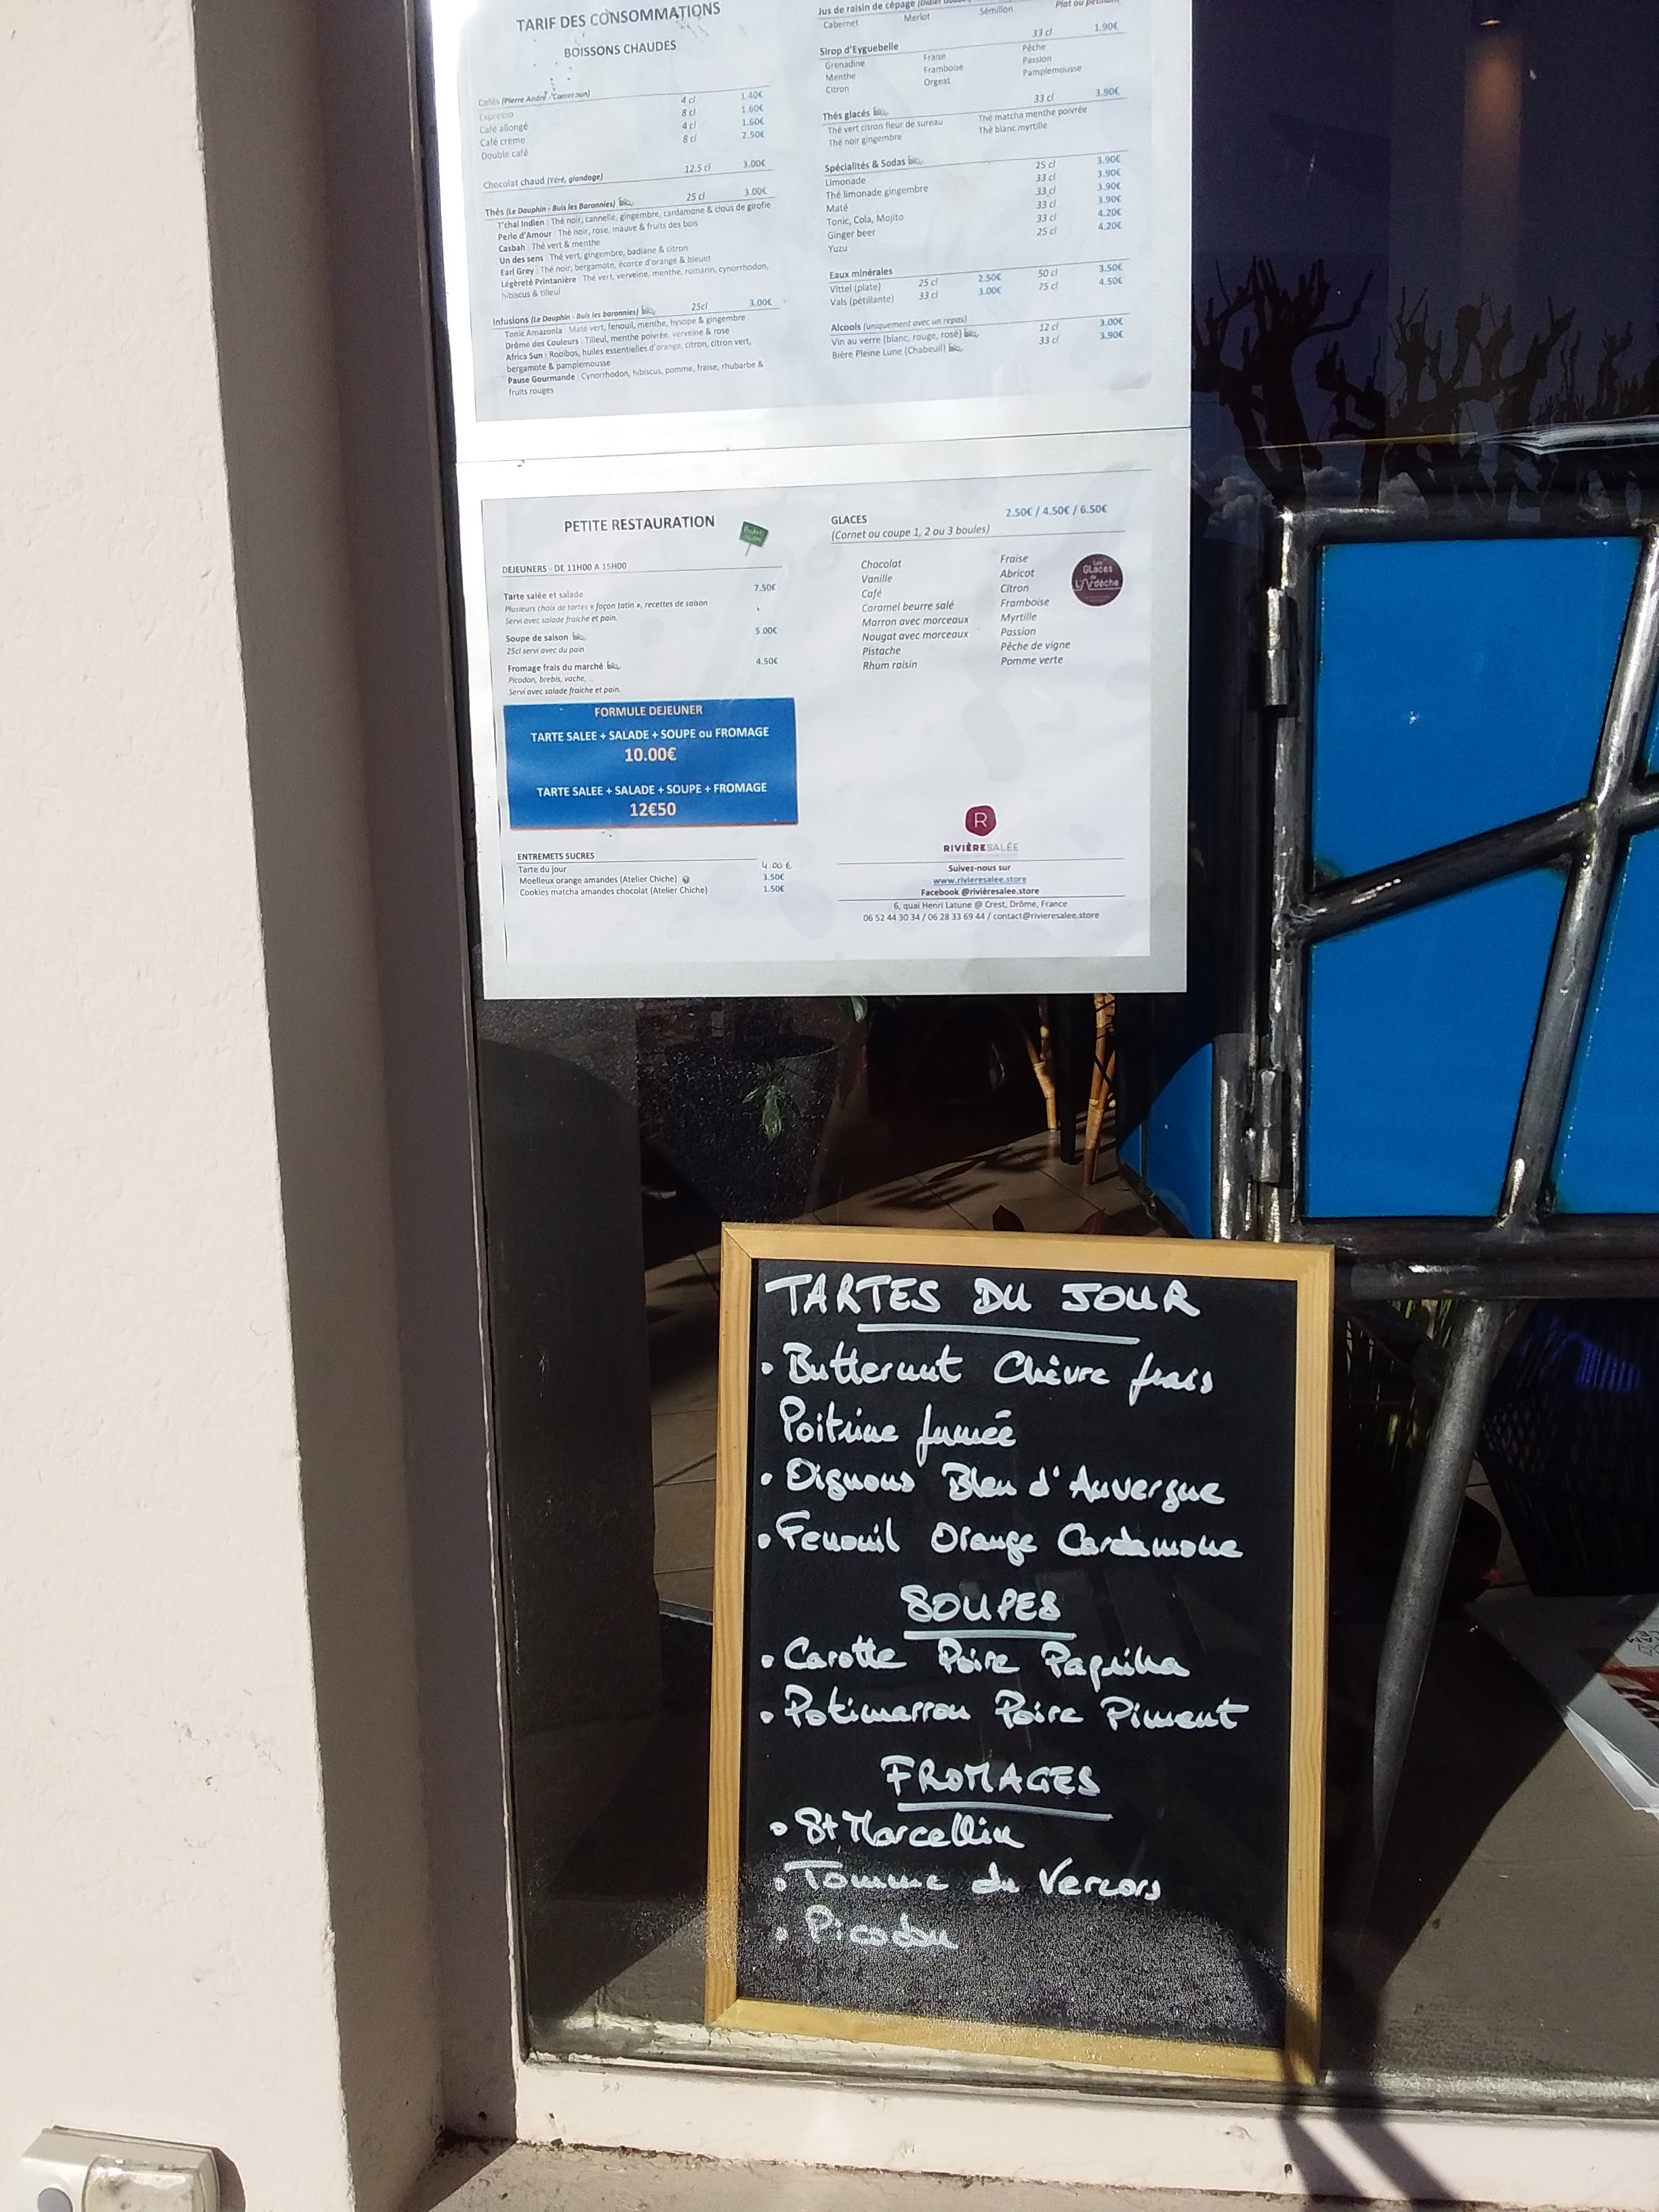 TARIF DES CONSOMMATIONS
BOISSONS CHAUDES
Cafés (Pierre André - Cameroun)
Expresso 4 cl 1.40€
Café allongé 8 cl 1.60€
Café crème 4 cl 1.60€
Double café 8 cl 2.50€
Chocolat chaud (Yéré, glandage) 12.5 cl 3.00€
Thés (Le Dauphin - Buis les Baronnies) bio 25 cl 3.00€
T'chaï Indien : Thé noir, cannelle, gingembre, cardamone & clous de girofle
Perle d'Amour : Thé noir, rose, mauve & fruits des bois
Casbah : Thé vert & menthe
Un des sens : Thé vert, gingembre, badiane & citron
Earl Grey : Thé noir, bergamote, écorce d'orange & bleuet
Légèreté Printanière : Thé vert, verveine, menthe, romarin, cynorrhodon,
hibiscus & tilleul
Infusions (Le Dauphin - Buis les baronnies) bio 25cl 3.00€
Tonic Amazonia : Maté vert, fenouil, menthe, hysope & gingembre
Drôme des Couleurs : Tilleul, menthe poivrée, verveine & rose
Africa Sun : Rooibos, huiles essentielles d'orange, citron, citron vert,
bergamote & pamplemousse
Pause Gourmande : Cynorrhodon, hibiscus, pomme, fraise, rhubarbe &
fruits rouges
Jus de raisin de cépage Plat ou pétillant
Cabernet Merlot Sémillon
Sirop d'Eyguebelle 33 cl 1.90€
Grenadine Fraise Pêche
Menthe Framboise Passion
Citron Orgeat Pamplemousse
Thés glacés bio 33 cl 3.90€
Thé vert citron fleur de sureau Thé matcha menthe poivrée
Thé noir gingembre Thé blanc myrtille
Spécialités & Sodas bio
Limonade 25 cl 3.90€
Thé limonade gingembre 33 cl 3.90€
Maté 33 cl 3.90€
Tonic, Cola, Mojito 33 cl 3.90€
Ginger beer 33 cl 4.20€
Yuzu 25 cl 4.20€
Eaux minérales
Vittel (plate) 25 cl 2.50€ 50 cl 3.50€
Vals (pétillante) 33 cl 3.00€ 75 cl 4.50€
Alcools (uniquement avec un repas)
Vin au verre (blanc, rouge, rosé) bio 12 cl 3.00€
Bière Pleine Lune (Chabeuil) bio 33 cl 3.90€
PETITE RESTAURATION
DEJEUNERS - DE 11H00 A 15H00
Tarte salée et salade 7.50€
Plusieurs choix de tartes « façon tatin », recettes de saison
Servi avec salade fraiche et pain.
Soupe de saison bio 5.00€
25cl servi avec du pain
Fromage frais du marché bio 4.50€
Picodon, brebis, vache, ...
Servi avec salade fraiche et pain.
FORMULE DEJEUNER
TARTE SALEE + SALADE + SOUPE ou FROMAGE
10.00€
TARTE SALEE + SALADE + SOUPE + FROMAGE
12€50
ENTREMETS SUCRES
Tarte du jour 4.00 €
Moelleux orange amandes (Atelier Chiche) 3.50€
Cookies matcha amandes chocolat (Atelier Chiche) 1.50€
GLACES 2.50€ / 4.50€ / 6.50€
(Cornet ou coupe 1, 2 ou 3 boules)
Chocolat Fraise
Vanille Abricot
Café Citron
Caramel beurre salé Framboise
Marron avec morceaux Myrtille
Nougat avec morceaux Passion
Pistache Pêche de vigne
Rhum raisin Pomme verte
Les
GLaces
de
L'Ardèche
R
RIVIÈRESALÉE
Suivez-nous sur
www.rivieresalee.store
Facebook @rivièresalee.store
6, quai Henri Latune @ Crest, Drôme, France
06 52 44 30 34 / 06 28 33 69 44 / contact@rivieresalee.store
TARTES DU JOUR
• Butternut Chèvre frais
Poitrine fumée
• Oignons Bleu d'Auvergne
• Fenouil Orange Cardamone
SOUPES
• Carotte Poire Paprika
• Potimarron Poire Piment
FROMAGES
• St Marcellin
• Tomme du Vercors
• Picodon